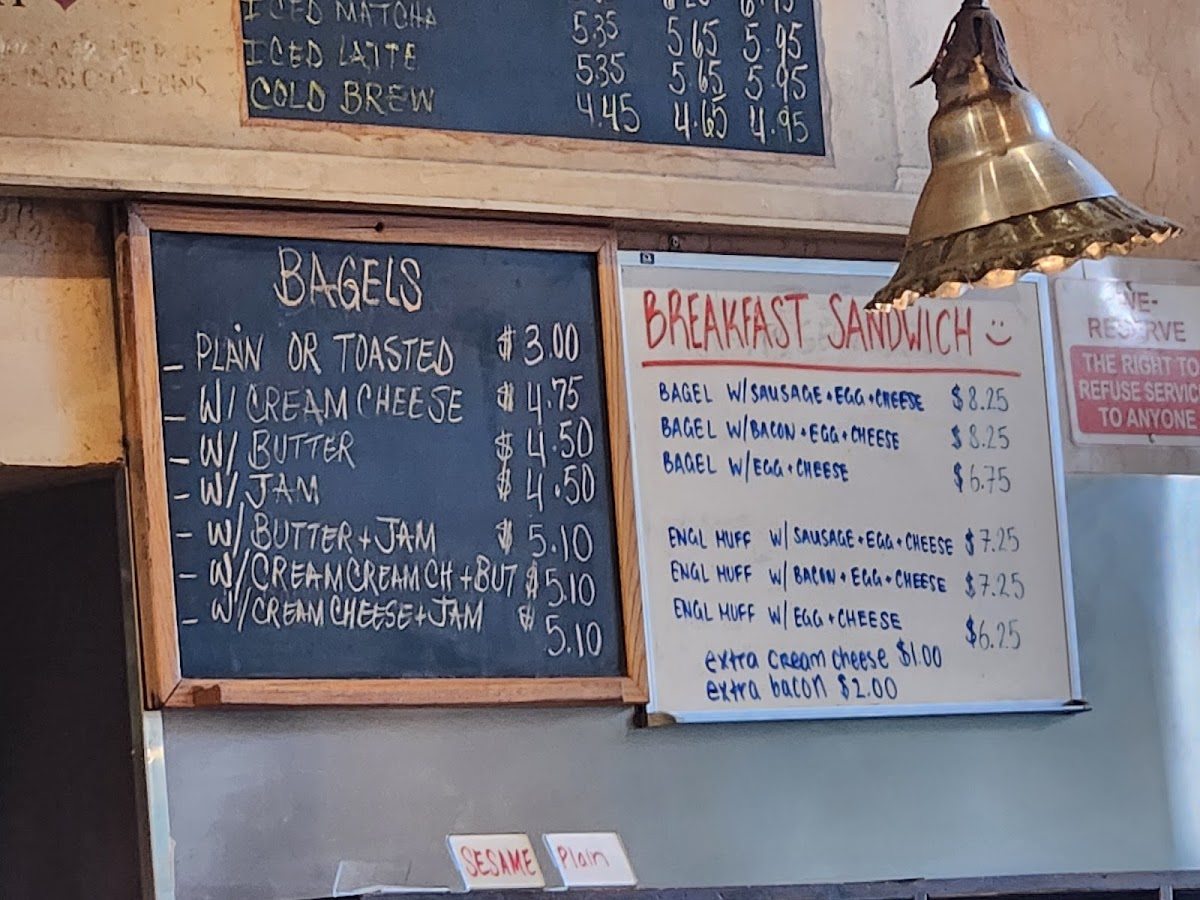 ICED MATCHA 5.35 5.65 5.95
ICED LATTE 5.35 5.65 5.95
COLD BREW 4.45 4.65 4.95
BAGELS
- PLAIN OR TOASTED $3.00
- W/ CREAM CHEESE $4.75
- W/ BUTTER $4.50
- W/ JAM $4.50
- W/ BUTTER + JAM $5.10
- W/ CREAM CREAM CH + BUT $5.10
- W/ CREAM CHEESE + JAM $5.10
BREAKFAST SANDWICH
BAGEL W/SAUSAGE+EGG+CHEESE $8.25
BAGEL W/BACON+EGG+CHEESE $8.25
BAGEL W/EGG+CHEESE $6.75
ENGL MUFF W/SAUSAGE+EGG+CHEESE $7.25
ENGL MUFF W/BACON+EGG+CHEESE $7.25
ENGL MUFF W/EGG+CHEESE $6.25
extra cream cheese $1.00
extra bacon $2.00
WE-
RESERVE
THE RIGHT TO
REFUSE SERVICE
TO ANYONE
SESAME
Plain